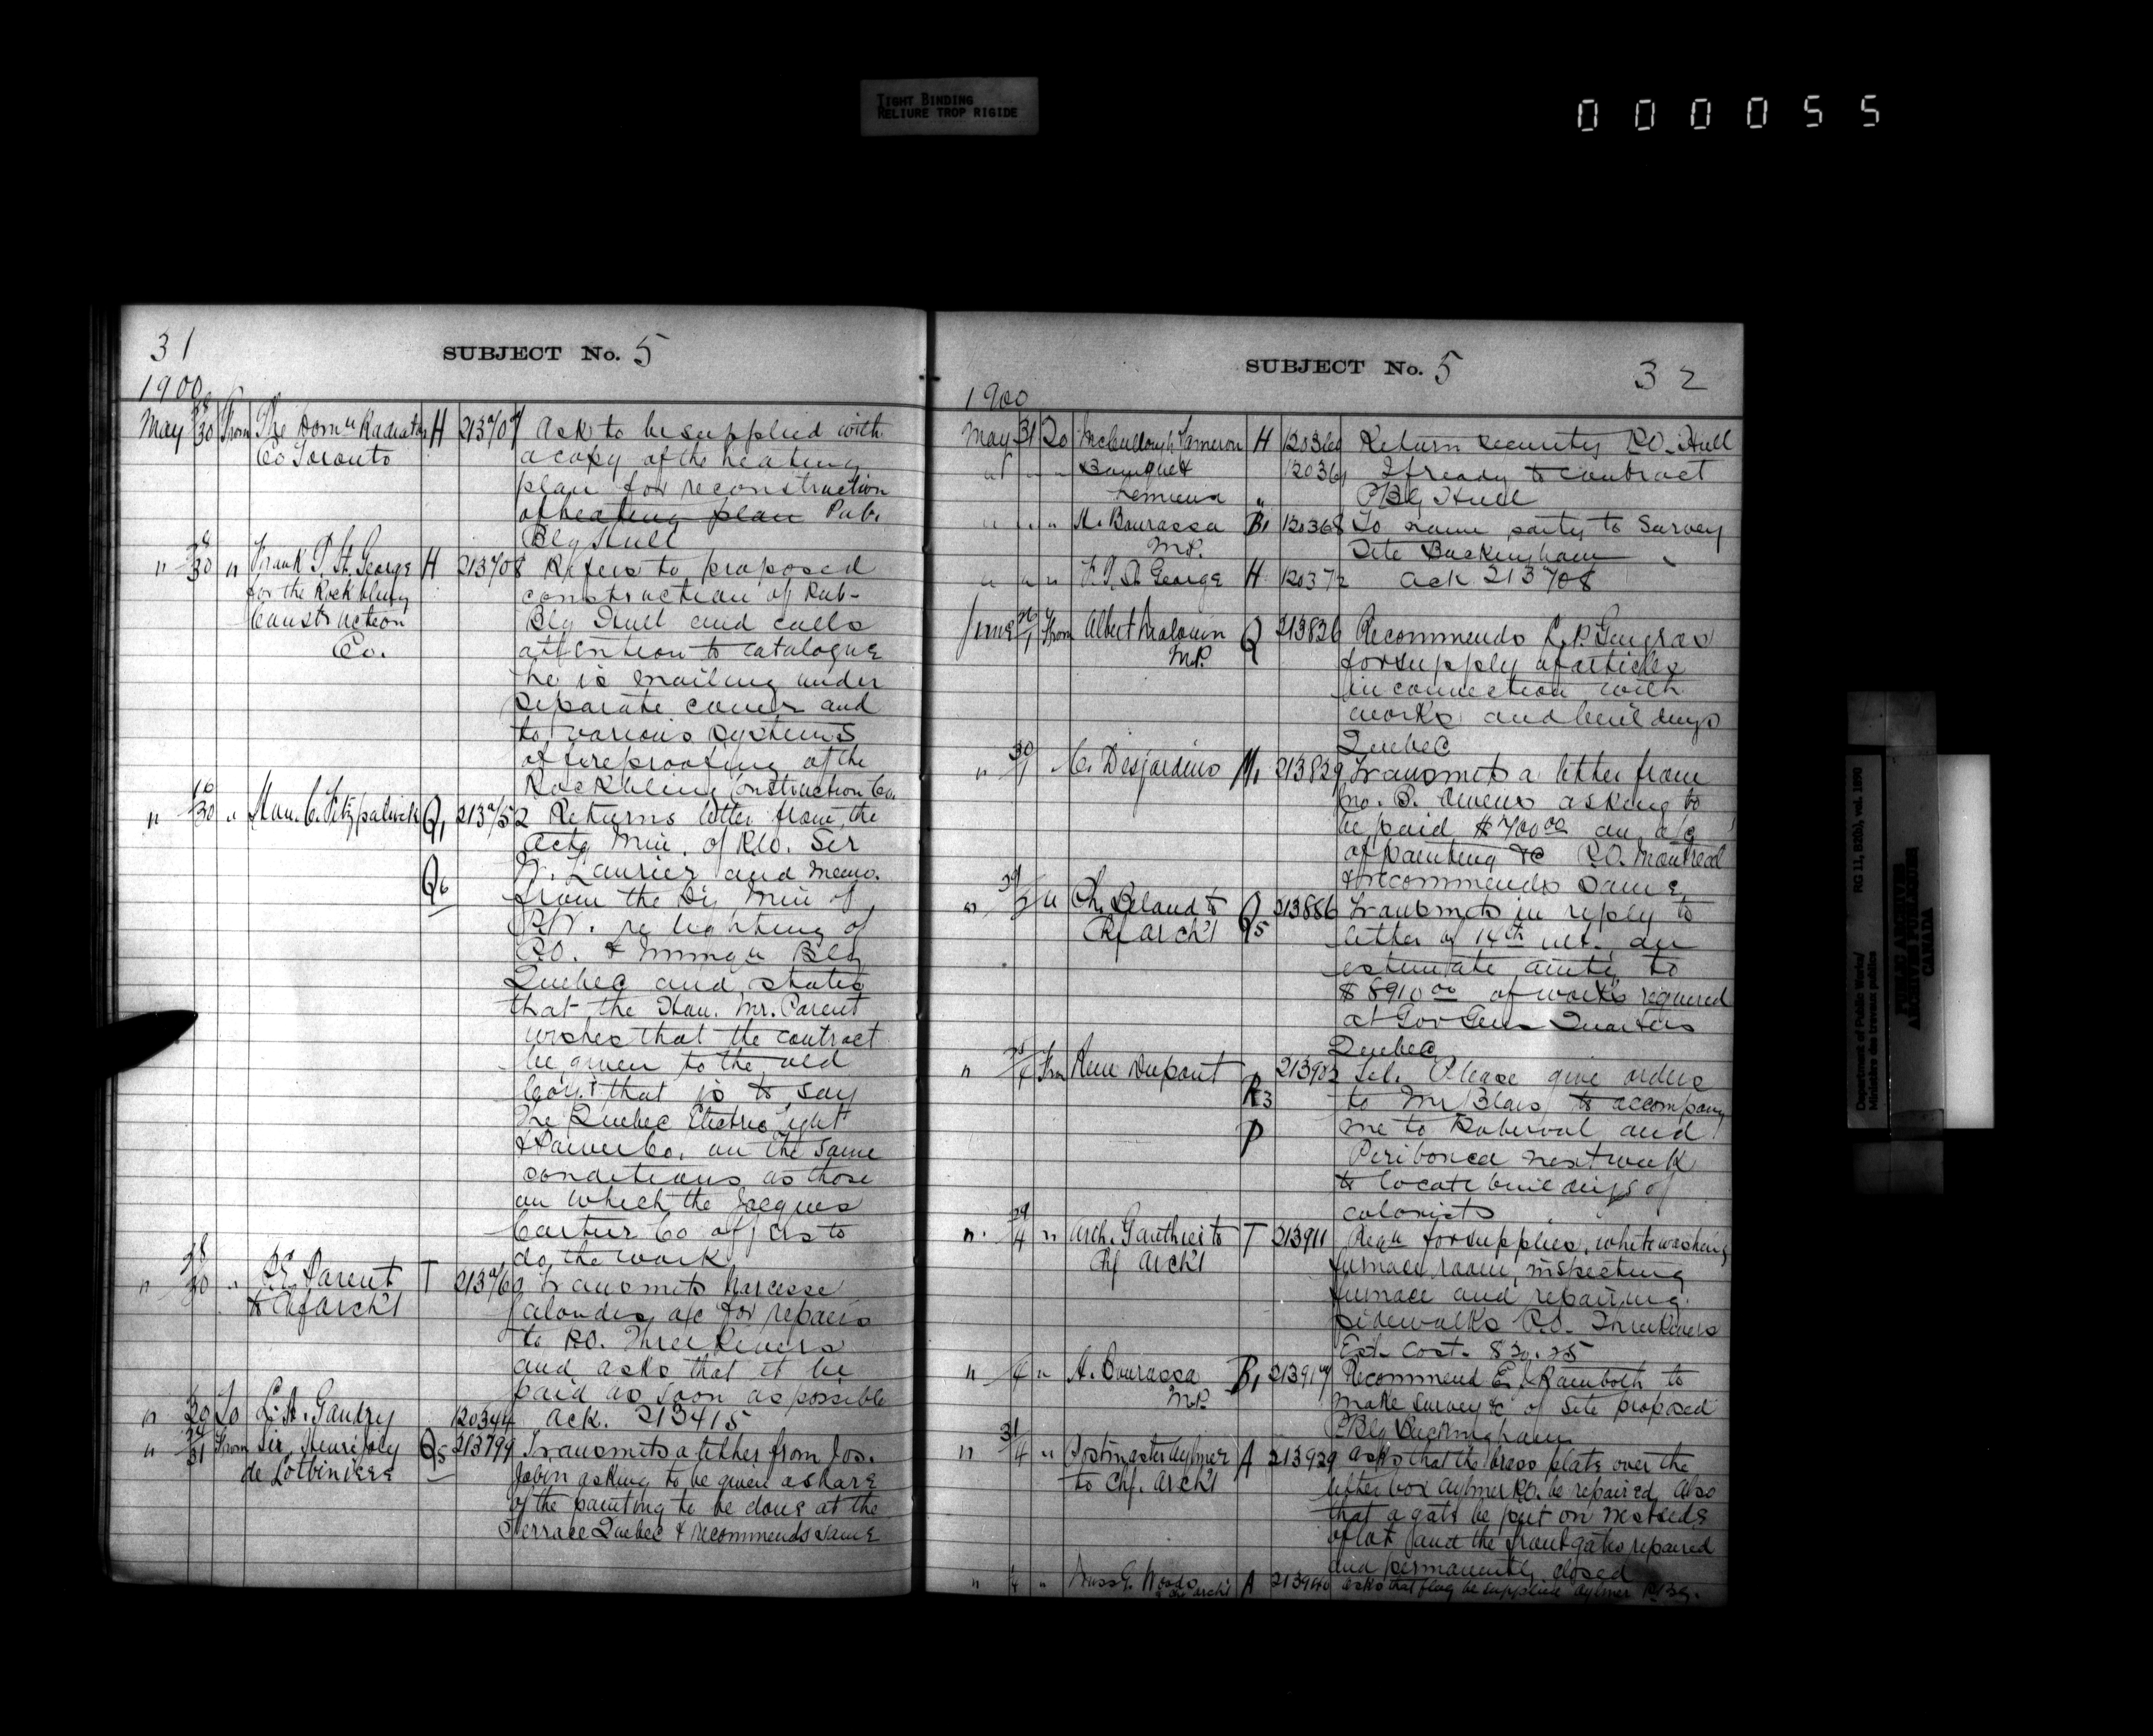 TIGHT BINDING
RELIURE TROP RIGIDE
000055
31
SUBJECT No. 5
1900
May 30 From The Domn Radiator H 213707 Ask to be supplied with
Co Toronto a copy of the heating
plan for reconstruction
of heating plan Pub.
Blg Hull
" 30 " Frank P. St. George H 213708 Refers to proposed
for the Roebling construction of Pub-
Construction Blg Hull and calls
Co. attention to catalogue
he is mailing under
separate cover and
to various systems
of fireproofing of the
Construction Co.
" 16/30 " Hon. C. Fitzpatrick Q1 213752 Returns letter from the
Actg Min. of P.W. Sir
Q6 W. Laurier and memo.
from the Dy Min of
P.W. re lighting of
P.O. & Immgn Blg
Quebec and states
that the Hon. Mr. Parent
wishes that the contract
be given to the old
Cont that is to say
The Quebec Electric Light
& Power Co. on the same
conditions as those
on which the Jacques
Cartier Co offers to
do the work
" 28/30 " Parent T 213760 Transmits Narcisse
to Chf Arch't a/c for repairs
to P.O. Three Rivers
and asks that it be
paid as soon as possible
" 30 To L. A. Gaudry 120344 Ack. 213415
" 31 From Sir Henri Joly Q5 213799 Transmits a letter from Jos.
de Lotbinière Jobin asking to be given a share
of the painting to be done at the
Terrace Quebec & recommends same
SUBJECT No. 5
32
1900
May 31 To McCullough Cameron H 120360 Return security P.O. Hull
" " " Bourque & 120361 If ready to contract
Lemieux " P Blg Hull
" " " H. Bourassa B1 120368 To name party to survey
M.P. Site Buckingham
" " " F. P. St. George H 120372 Ack 213708
June 1 From Albert Malouin Q 213826 Recommends Gingras
M.P. for supply of articles
in connection with
works and buildings
Quebec
" 30/1 C. Desjardins M1 213829 Transmits a letter from
Jno. B. Owens asking to
be paid $700.00 on a/c
of painting &c P.O. Montreal
& recommends same
" 29/2 " Ph. Béland to Q 213886 Transmits in reply to
Chf Arch't Q5 letter of 14th ult. an
estimate amtg to
$8910.00 of works required
at Gov Gens Quarters
Quebec
" 4 From Rene Dupont 213903 Tel. Please give orders
R3 to Mr Blais to accompany
P me to Roberval and
Peribonca next week
to locate buildings of
colonists
" 29/4 " Arch. Gauthier to T 213911 Reqn for supplies, whitewashing
Chf Arch't furnace room, inspecting
furnace and repairing
sidewalks P.O. Three Rivers
Est. Cost. $30.25
" 4 " H. Bourassa B1 213917 Recommend E. J. Rainboth to
M.P. make survey &c of site proposed
P Blg Buckingham
" 31/4 " Postmaster Aylmer A 213929 Asks that the brass plate over the
to Chf. Arch't letter box Aylmer P.O. be repaired, Also
that a gate be put on West side
of lot and the front gates repaired
and permanently closed
" 4 " Woods A 213940 Asks that flag be supplied Aylmer P. Blg.
to Chf Arch't
Department of Public Works/
Ministère des travaux publics
RG 11, B2(b), vol. 1890
PUBLIC ARCHIVES
ARCHIVES PUBLIQUES
CANADA